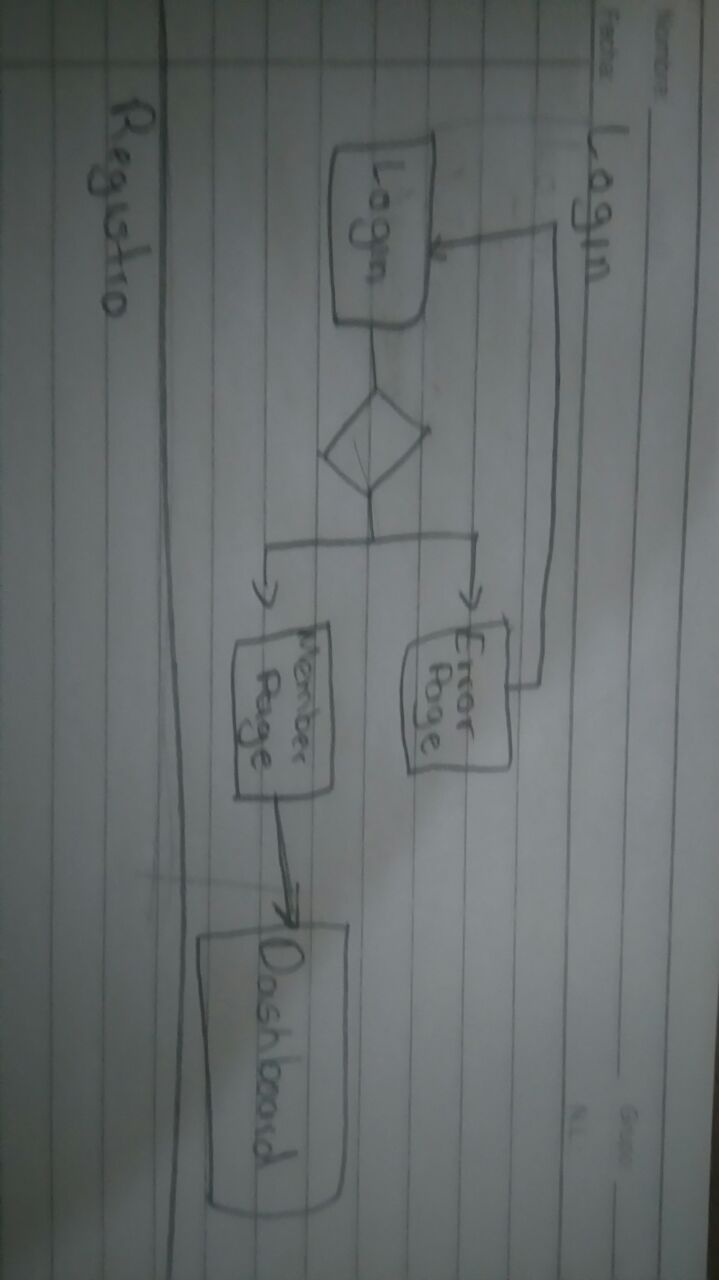 Nombre:
Fecha:
Grupo:
N.L.
Login
Login
Error
Page
Member
Page
Dashboard
Registro